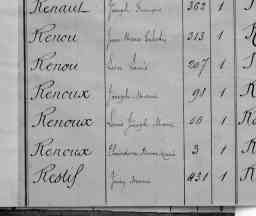 Renault Joseph François 362 1
Renou Jean Marie 313 1
Renou Léon Louis 207 1
Renoux Joseph Marie 91 1
Renoux Louis Joseph Marie 66 1
Renoux 3 1
Restif Marie 431 1